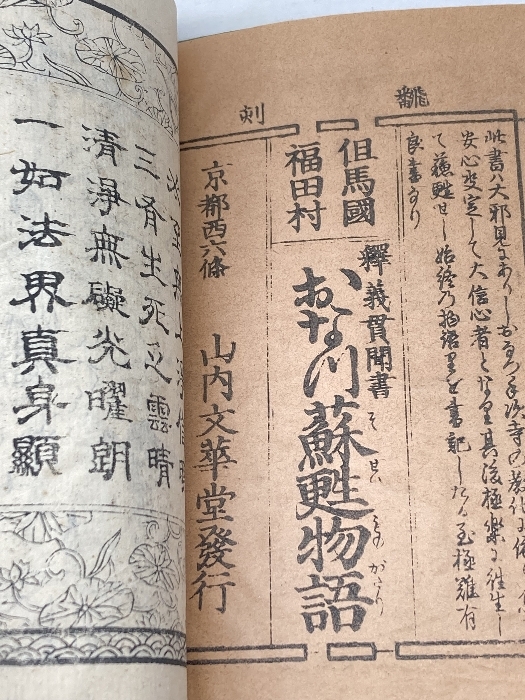 飜刻
此書ハ大邪見にありし
安心决定して大信心者となり其後極樂に往生し
て蘇甦せし始終の物語りを書記したる至極難有
良書なり
但馬國
福田村
釋義貫聞書
おなつ蘇甦物語
そせいものがたり
京都西六條
山内文華堂發行
三有生死之雲晴
清淨無礙光曜朗
一如法界真身顯